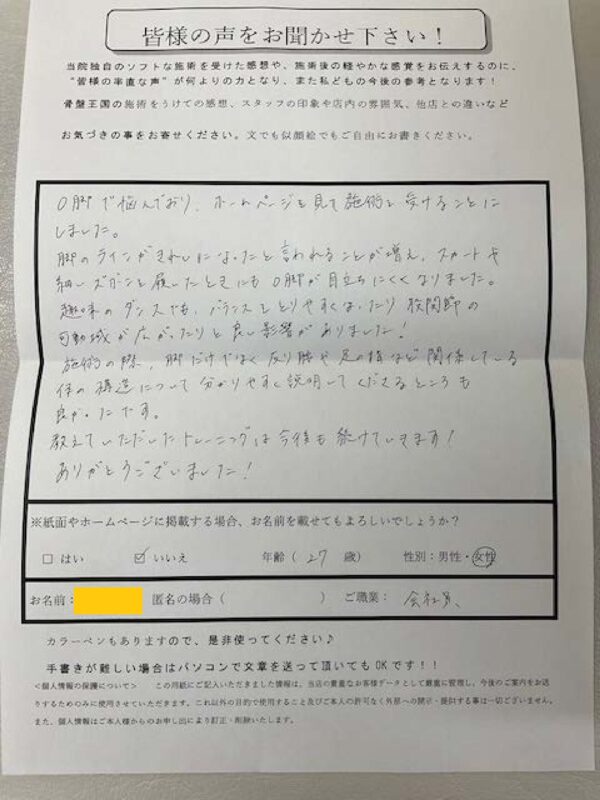 皆様の声をお聞かせ下さい！
当院独自のソフトな施術を受けた感想や、施術後の軽やかな感覚をお伝えするのに、
“皆様の率直な声”が何よりの力となり、また私どもの今後の参考となります！
骨盤王国の施術をうけての感想、スタッフの印象や店内の雰囲気、他店との違いなど
お気づきの事をお寄せください。文でも似顔絵でもご自由にお書きください。
O脚で悩んでおり、ホームページを見て施術を受けることに
しました。
脚のラインがきれいになったと言われることが増え、スカートや
細いズボンを履いたときにもO脚が目立ちにくくなりました。
趣味のダンスでも、バランスをとりやすくなったり股関節の
可動域が広がったりと良い影響がありました！
施術の際、脚だけでなく反り腰や足の指など関係している
体の構造について分かりやすく説明してくださるところも
良かったです。
教えていただいたトレーニングは今後も続けていきます！
ありがとうございました！
※紙面やホームページに掲載する場合、お名前を載せてもよろしいでしょうか？
□ はい ☑ いいえ 年齢（ 27 歳） 性別：男性・女性
お名前： 匿名の場合（ ） ご職業： 会社員、
カラーペンもありますので、是非使ってください♪
手書きが難しい場合はパソコンで文章を送って頂いてもOKです！！
＜個人情報の保護について＞ この用紙にご記入いただきました情報は、当店の貴重なお客様データとして厳重に管理し、今後のご案内をお送
りするためのみに使用させていただきます。これ以外の目的で使用すること及びご本人の許可なく外部への開示・提供する事は一切ございません。
また、個人情報はご本人様からのお申し出により訂正・削除いたします。